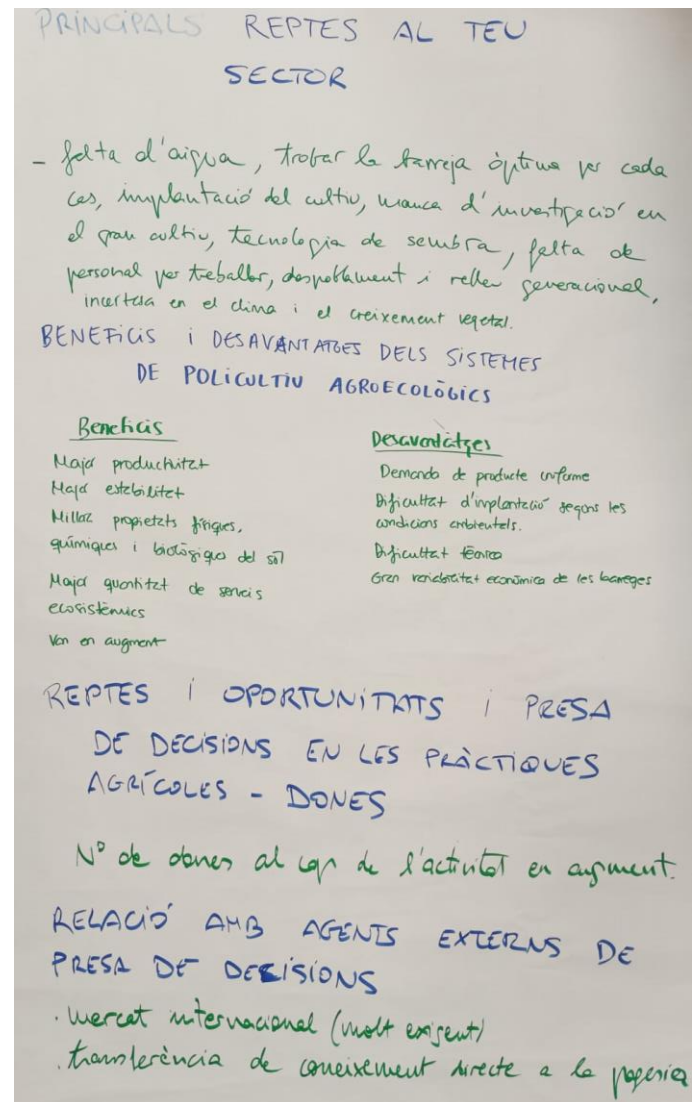 PRINCIPALS REPTES AL TEU
SECTOR
- falta d'aigua, trobar la barreja òptima per cada
cas, implantació del cultiu, manca d'investigació en
el gran cultiu, tecnologia de sembra, falta de
personal per treballar, despoblament i relleu generacional,
incertesa en el clima i el creixement vegetal.
BENEFICIS i DESAVANTATGES DELS SISTEMES
DE POLICULTIU AGROECOLÒGICS
Beneficis
Major productivitat
Major estabilitat
Millor propietats físiques,
químiques i biològiques del sòl
Major quantitat de serveis
ecosistèmics
Van en augment
Desavantatges
Demanda de producte uniforme
Dificultat d'implantació segons les
condicions ambientals.
Dificultat tècnica
Gran variabilitat econòmica de les barreges
REPTES i OPORTUNITATS i PRESA
DE DECISIONS EN LES PRÀCTIQUES
AGRÍCOLES - DONES
Nº de dones al cap de l'activitat en augment.
RELACIÓ AMB AGENTS EXTERNS DE
PRESA DE DECISIONS
· mercat internacional (molt exigent)
· transferència de coneixement directe a la pagesia